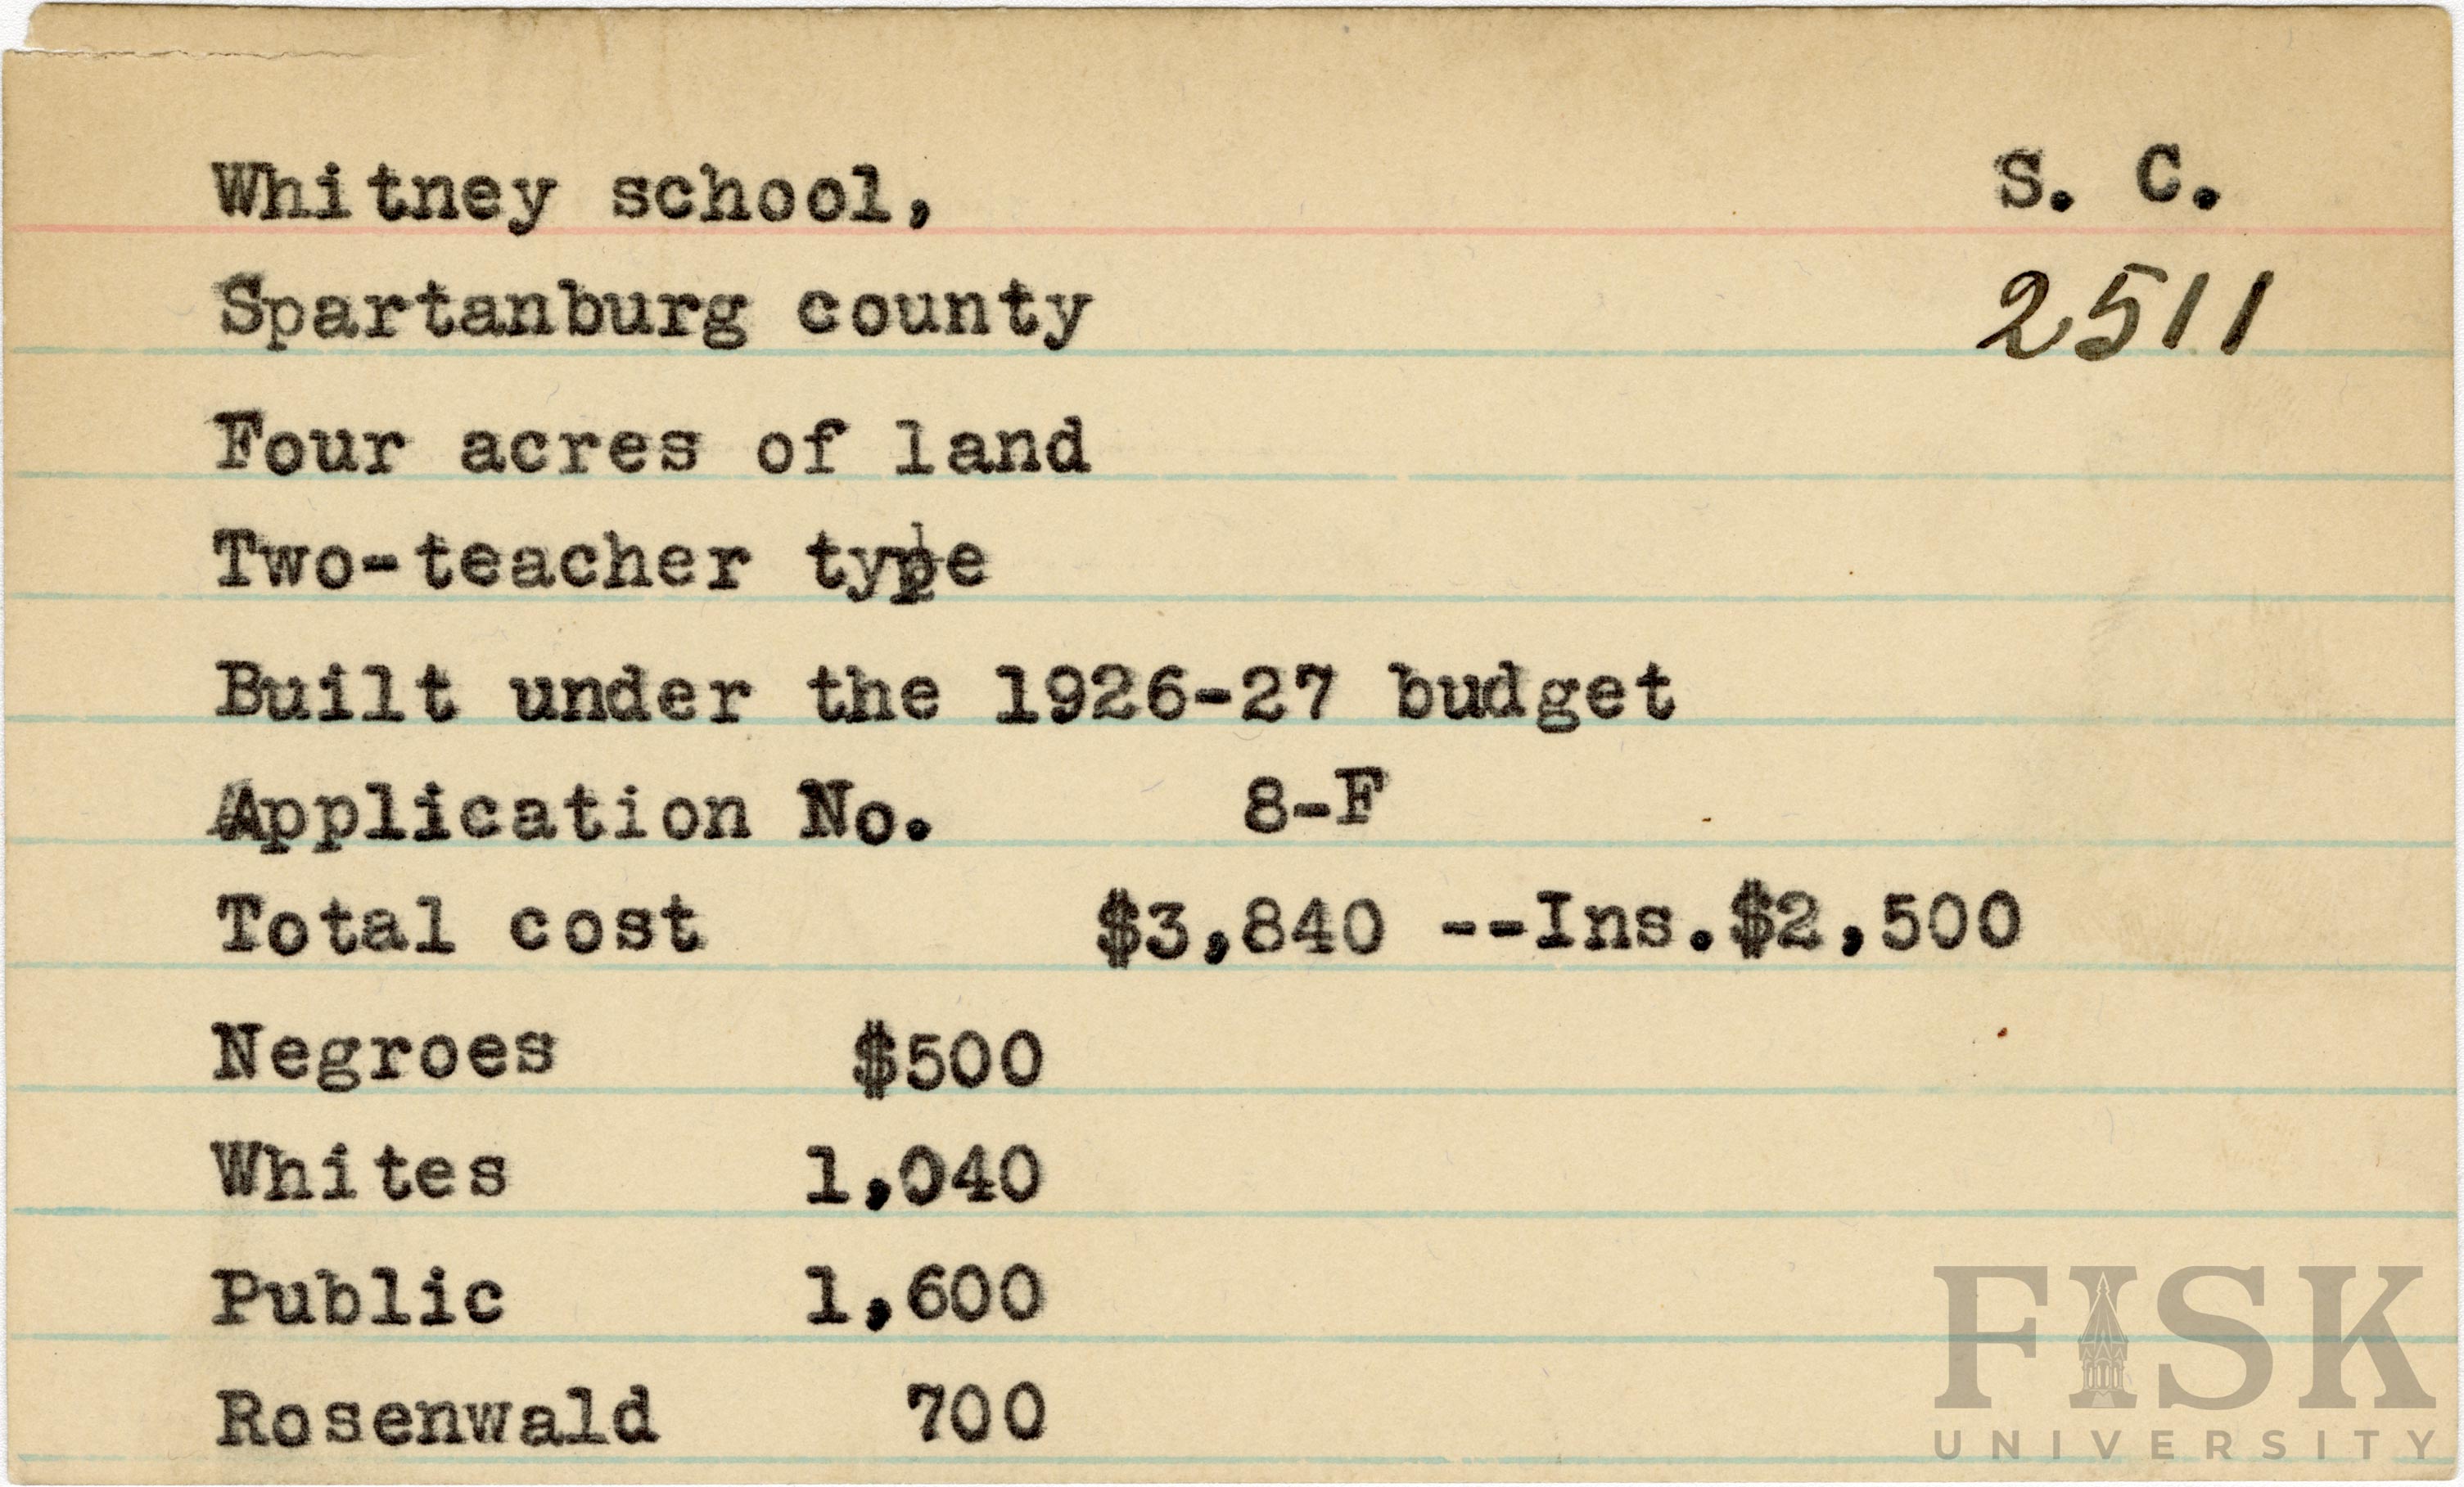 Whitney school, S. C.
Spartanburg county 2511
Four acres of land
Two-teacher type
Built under the 1926-27 budget
Application No. 8-F
Total cost $3,840 --Ins.$2,500
Negroes $500
Whites 1,040
Public 1,600
Rosenwald 700
FISK
UNIVERSITY